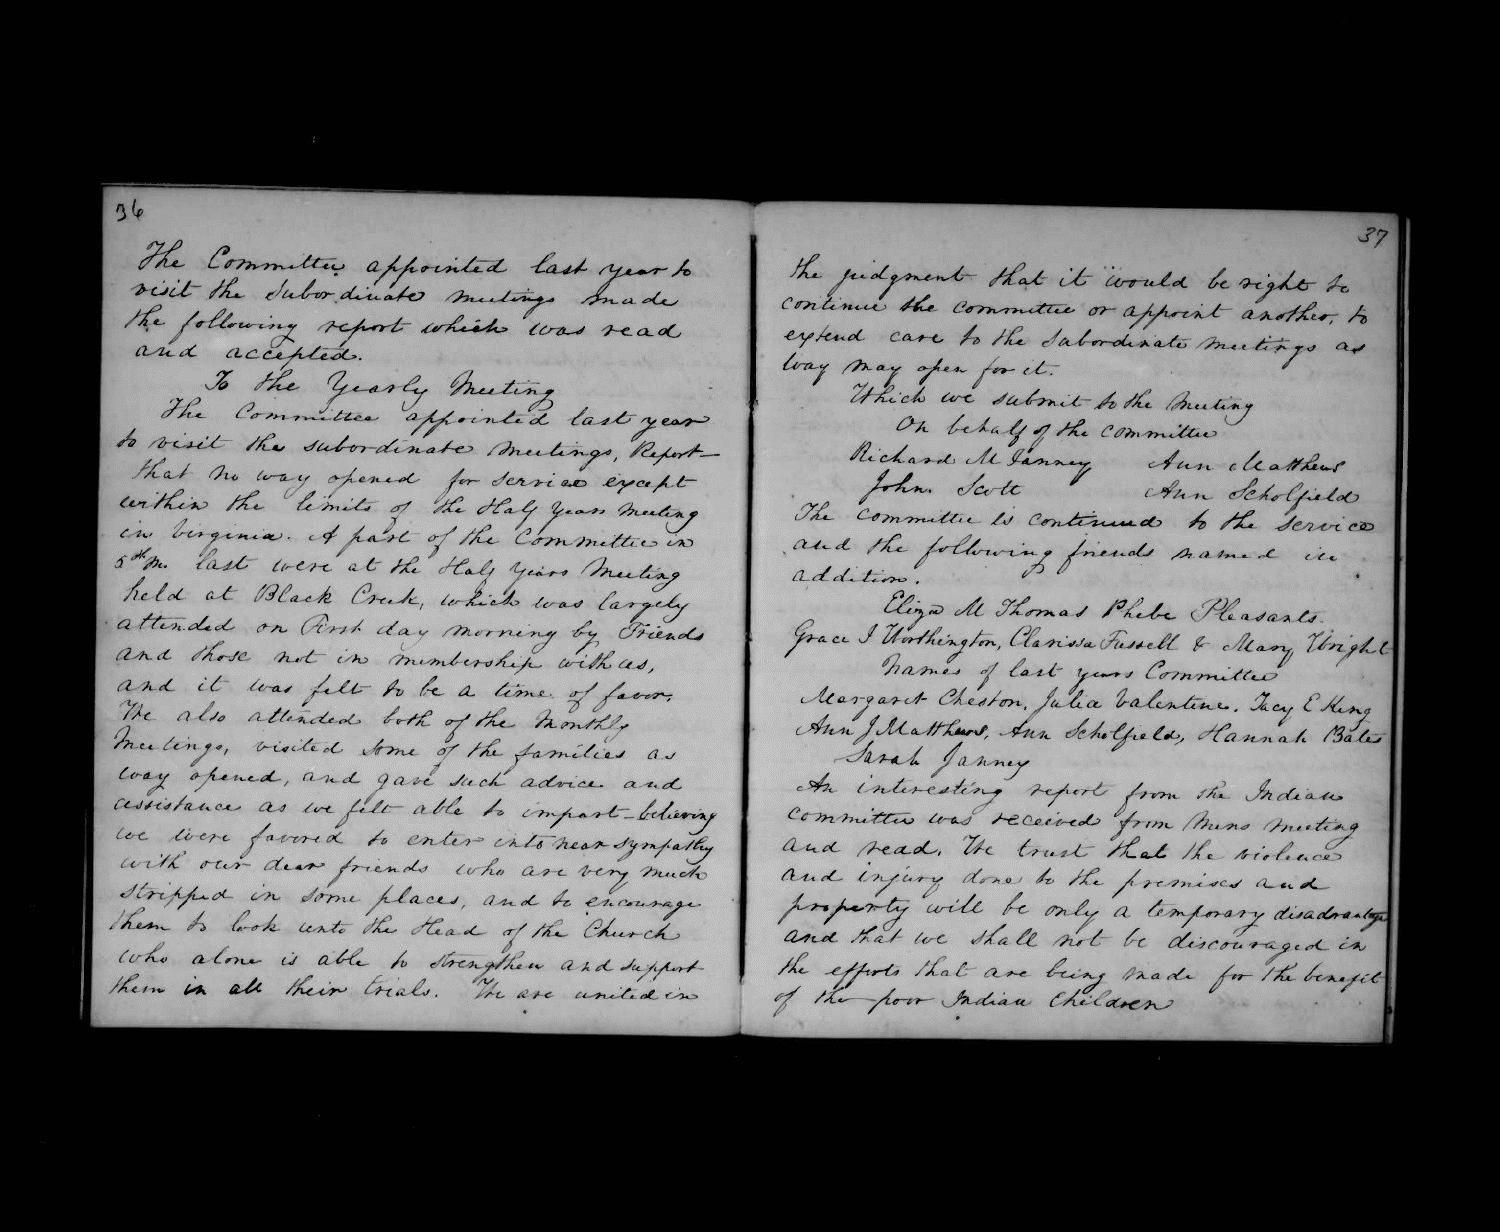 36
The Committee appointed last year to
visit the Subordinate meetings made
the following report which was read
and accepted.
To the Yearly Meeting
The Committee appointed last year
to visit the subordinate meetings, Report—
that no way opened for service except
within the limits of the Half Years Meeting
in Virginia. A part of the Committee in
5th m. last were at the Half Years Meeting
held at Black Creek, which was largely
attended on First day morning by Friends
and those not in membership with us,
and it was felt to be a time of favor.
We also attended both of the Monthly
Meetings, visited some of the families as
way opened, and gave such advice and
assistance as we felt able to impart—believing
we were favored to enter into near sympathy
with our dear friends who are very much
stripped in some places, and to encourage
them to look unto the Head of the Church
who alone is able to strengthen and support
them in all their trials. We are united in
37
the judgment that it would be right to
continue the committee or appoint another, to
extend care to the subordinate meetings as
way may open for it.
Which we submit to the Meeting
On behalf of the committee
Richard M Janney Ann Matthews
John Scott Ann Scholfield
The committee is continued to the service
and the following friends named in
addition.
Eliza M Thomas Phebe Pleasants.
Grace J Worthington, Clarissa Fussell & Mary Wright
Names of last years Committee
Margaret Cheston, Julia Valentine, Tacy E King
Ann J Matthews, Ann Scholfield, Hannah Bates
Sarah Janney
An interesting report from the Indian
committee was received from Mens meeting
and read. We trust that the violence
and injury done to the premises and
property will be only a temporary disadvantage
and that we shall not be discouraged in
the efforts that are being made for the benefit
of the poor Indian Children